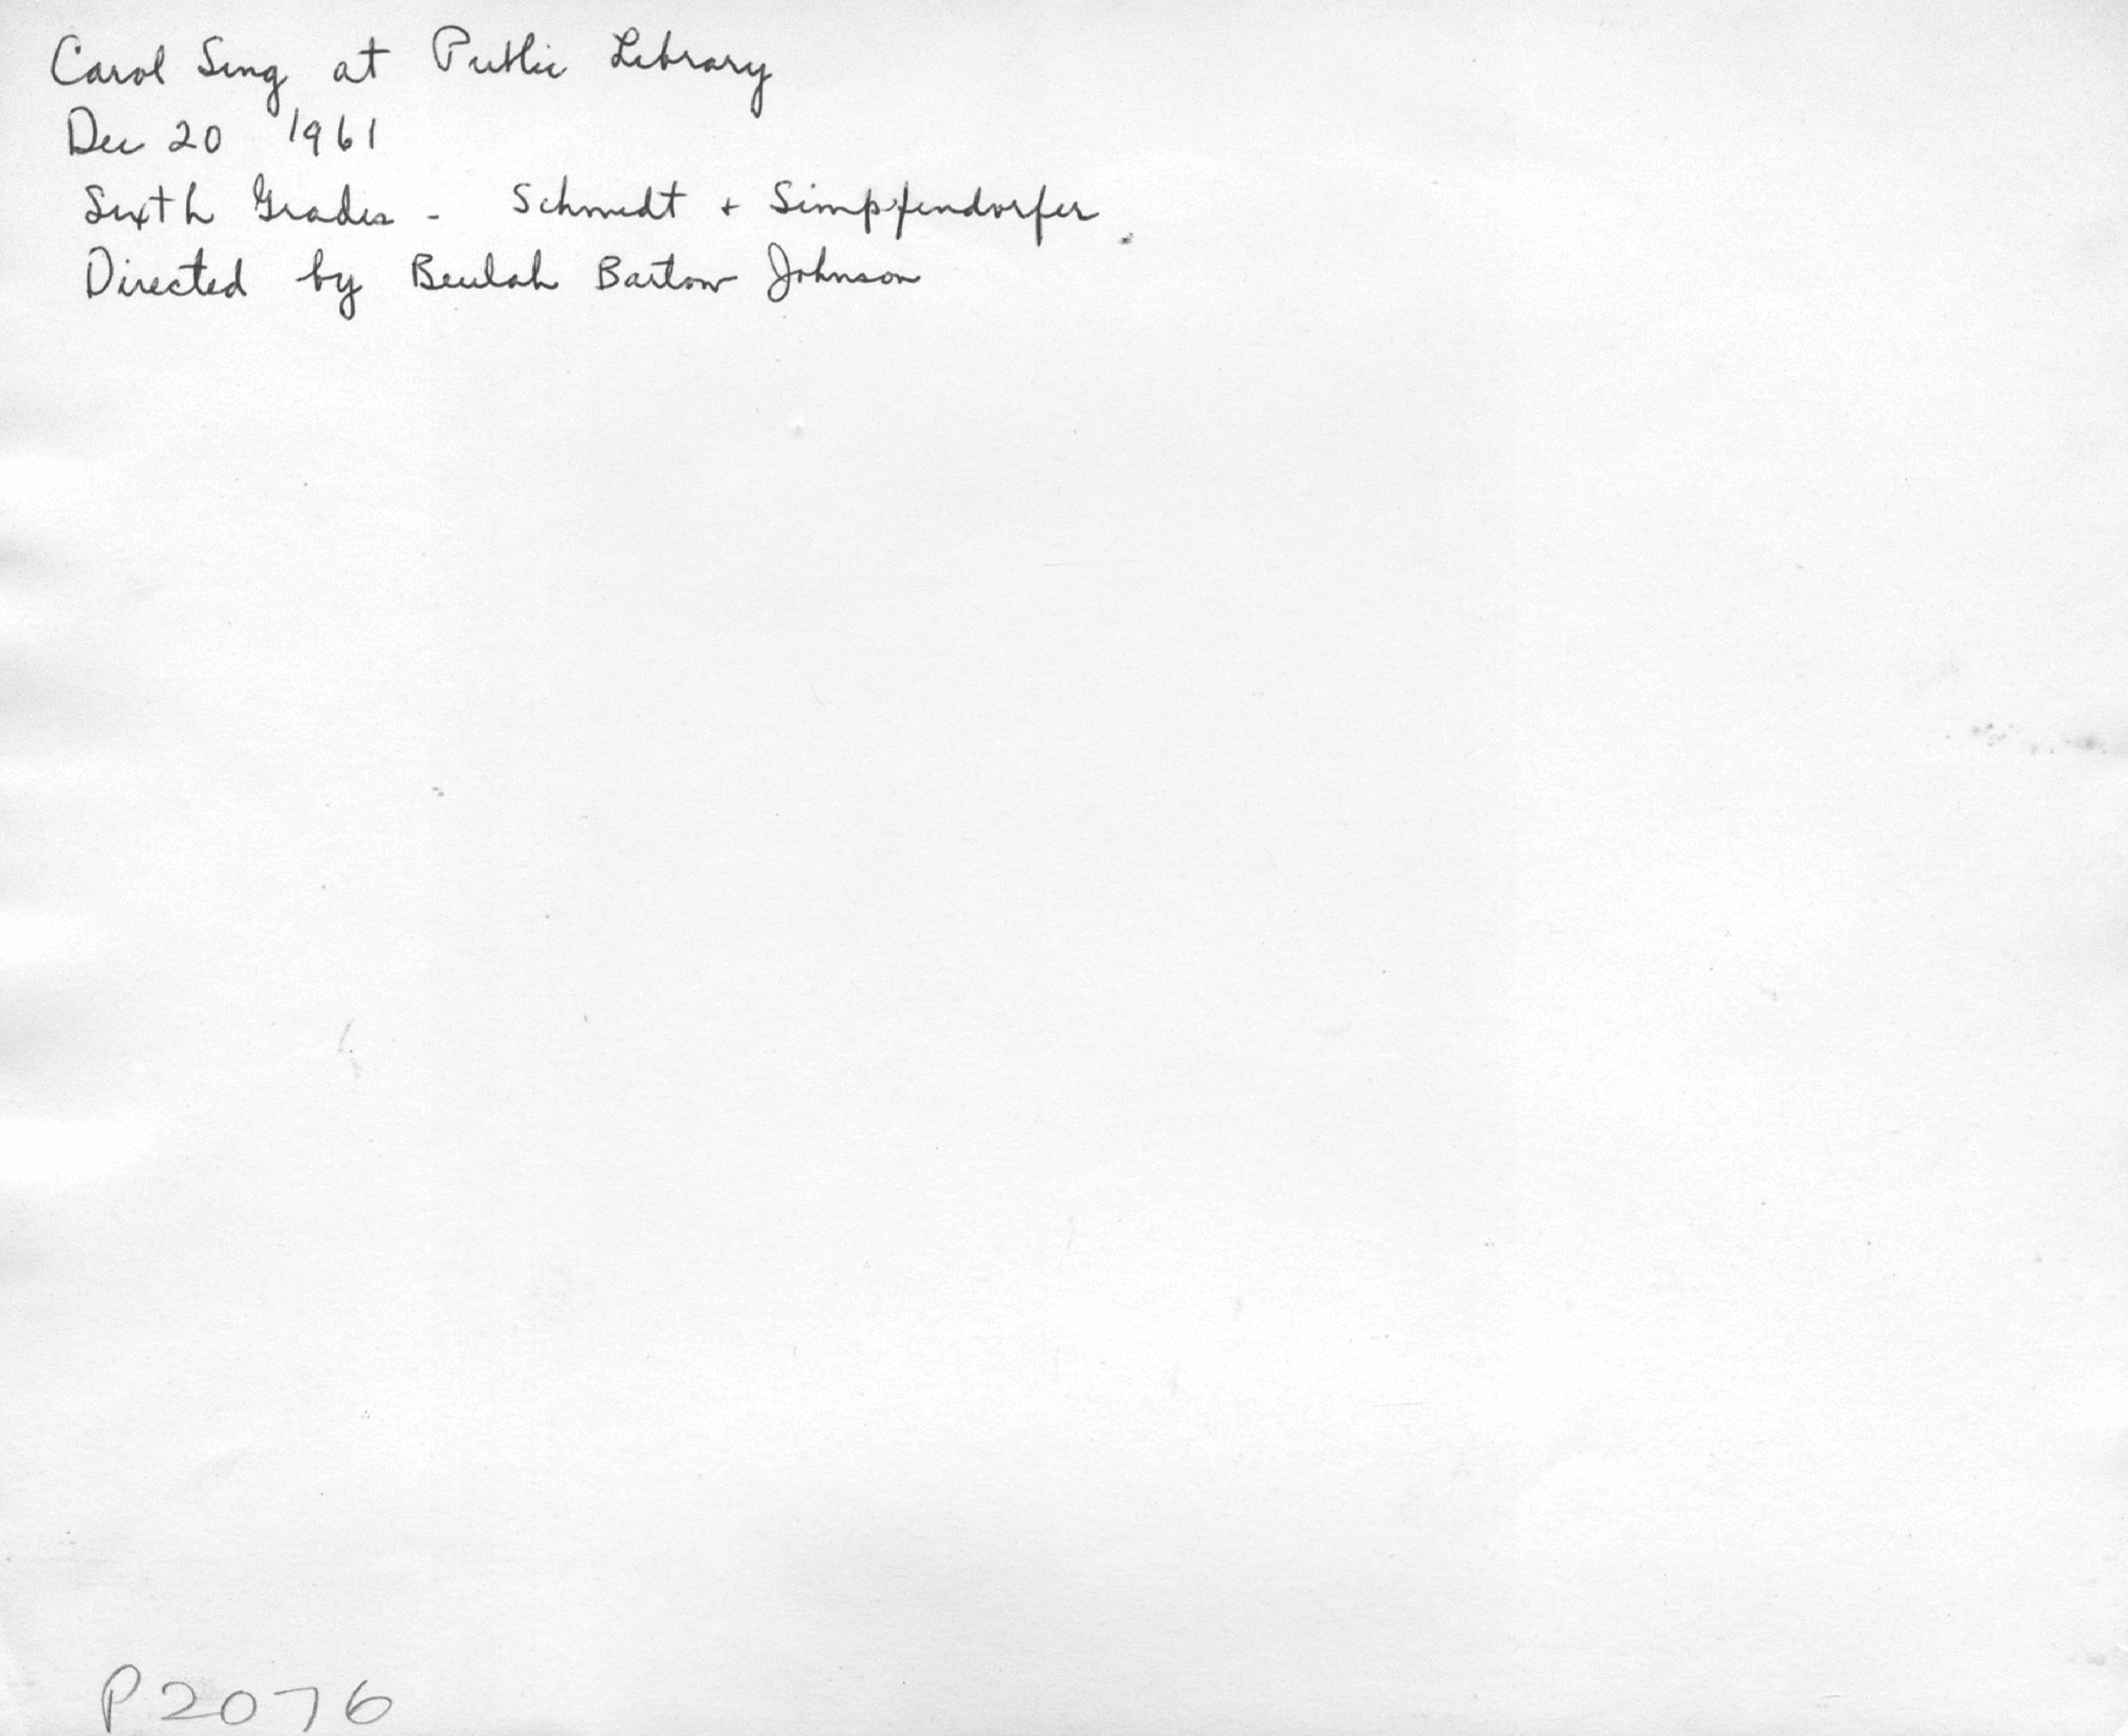 Carol Sing at Public Library
Dec 20 1961
Sixth Grades - Schmidt + Simpfendorfer
Directed by Beulah Bartow Johnson
P2076